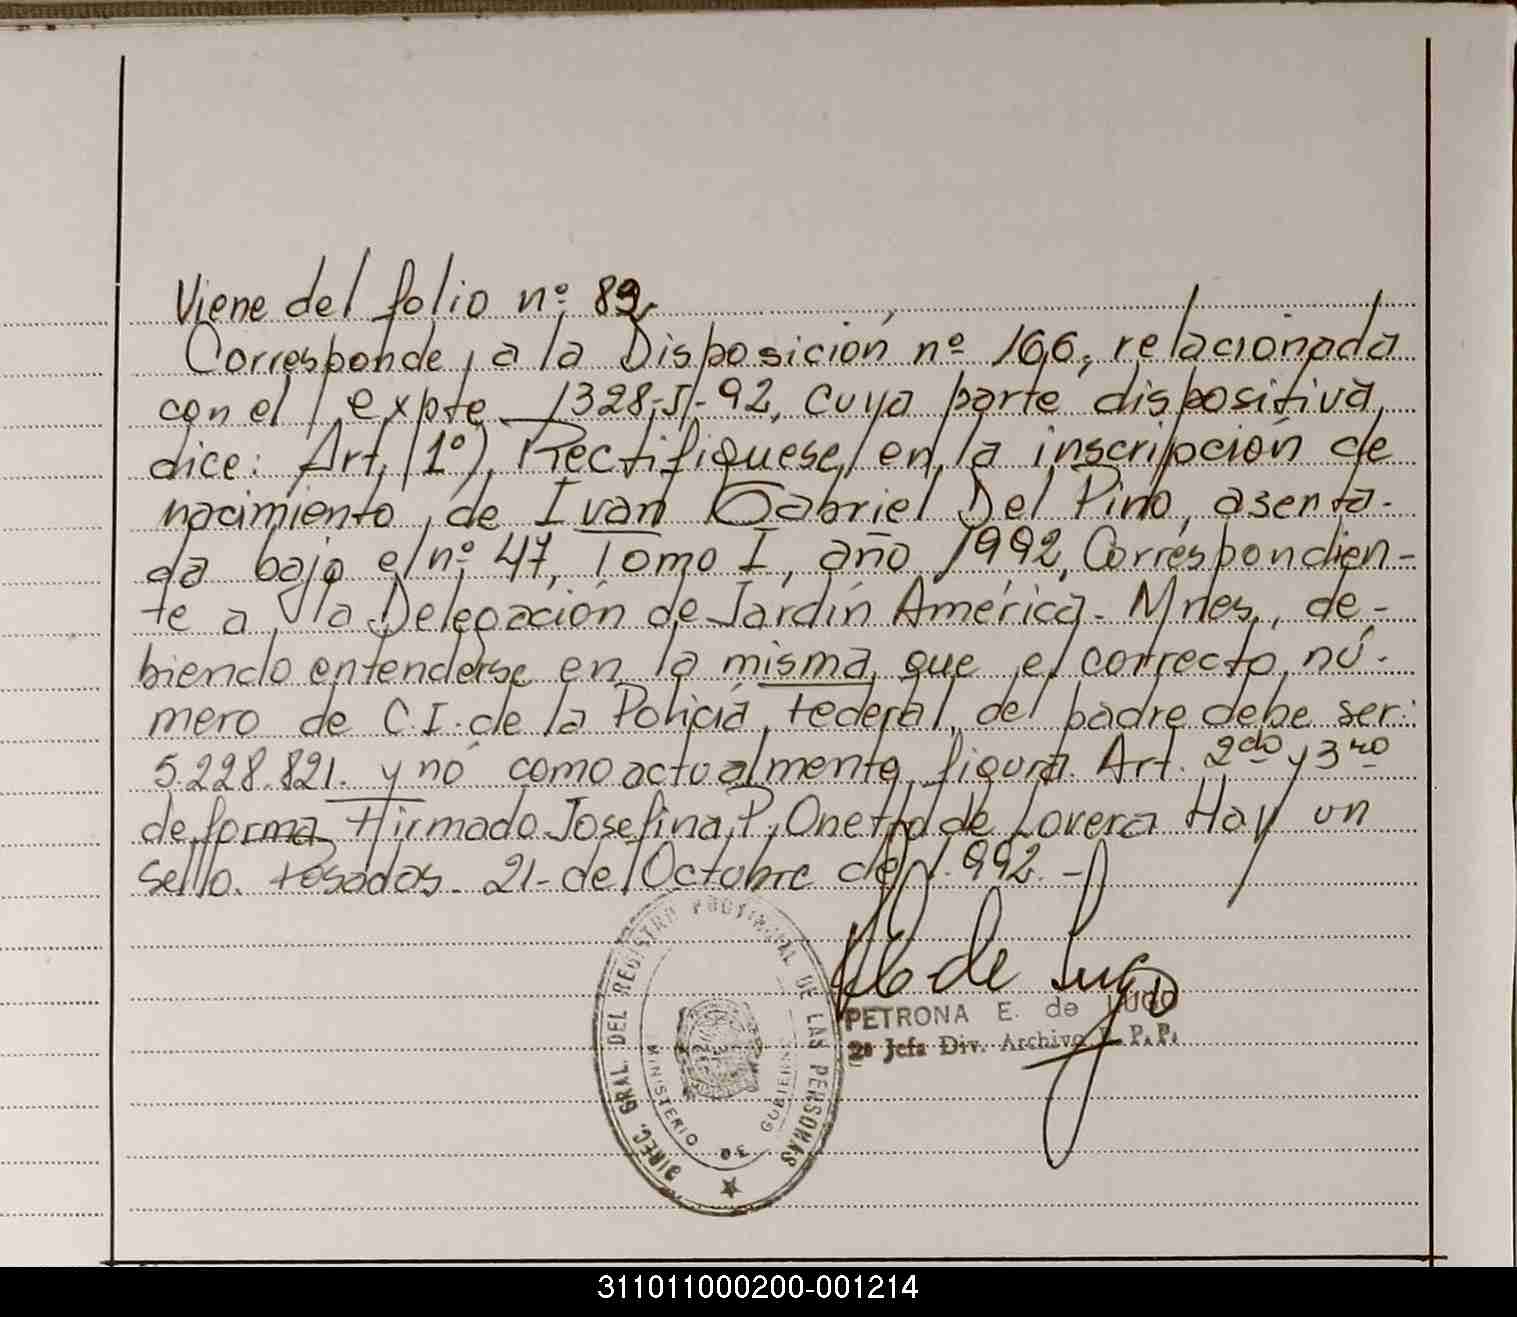 Viene del folio nº 89
Corresponde, a la Disposición nº 166, relacionada
con el expte 1328-I-92, cuya parte dispositiva
dice: Art. 1º) Rectifíquese, en la inscripción de
nacimiento, de Ivan Gabriel Del Pino, asenta-
da bajo el nº 47, Tomo I, año 1992, Correspondien-
te a la Delegación de Jardín América - Mnes., de-
biendo entenderse en la misma que el correcto nú-
mero de C.I. de la Policía Federal del padre debe ser:
5.228.821. y no como actualmente figura. Art. 2do y 3ro
de forma Firmado Josefina P. Onetto de Lovera Hay un
sello. Posadas. 21- de Octubre de 1.992.-
de Lugo
PETRONA E. de LUGO
2º Jefa Div. Archivo R.P.P.
DIREC. GRAL. DEL REGISTRO PROVINCIAL DE LAS PERSONAS
MINISTERIO DE GOBIERNO
311011000200-001214